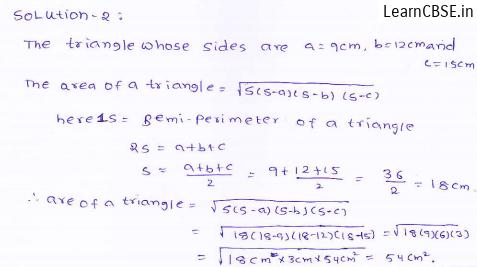 LearnCBSE.in
Solution-2:
The triangle whose sides are a=9cm, b=12cm and
c=15cm
The area of a triangle = √s(s-a)(s-b)(s-c)
here s = Semi-Perimeter of a triangle
2s = a+b+c
s = a+b+c/2 = 9+12+15/2 = 36/2 = 18cm.
∴ are of a triangle = √s(s-a)(s-b)(s-c)
= √18(18-9)(18-12)(18-15) = √18(9)(6)(3)
= √18cm × 3cm × 54cm² = 54cm².